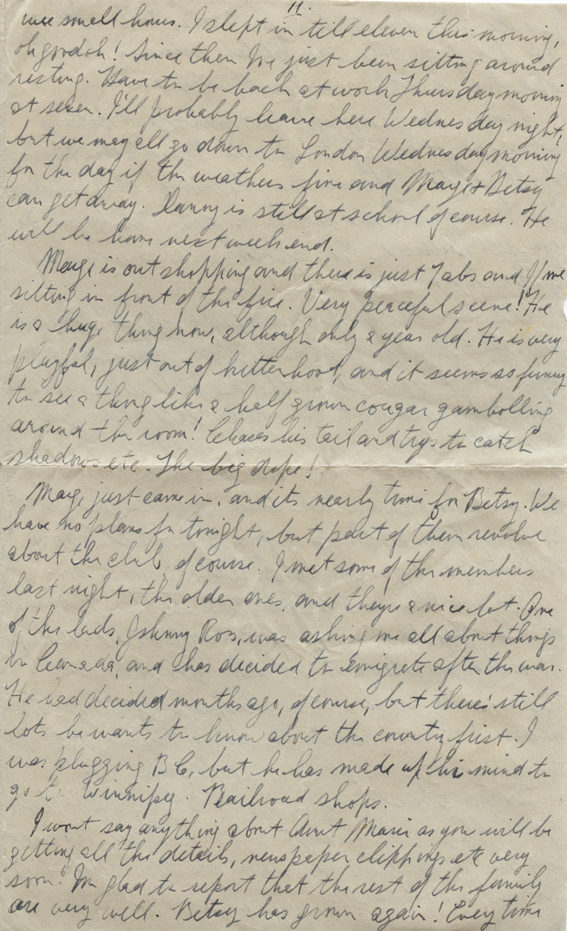 11.
wee small hours. I slept in till eleven this morning,
oh goodoh! Since then I've just been sitting around
resting. Have to be back at work Thursday morning
at seven. I'll probably leave here Wednesday night,
but we may all go down to London Wednesday morning
for the day if the weathers fine and Marge & Betsy
can get away. Danny is still at school of course. He
will be home next week end.
Marge is out shopping and there is just Tabs and I/me
sitting in front of the fire. Very peaceful scene! He
is a huge thing now, although only a year old. He is very
playful, just out of kittenhood, and it seems so funny
to see a thing like a half grown cougar gambolling
around the room! Chases his tail and trys to catch
shadows etc. The big dope!
Marge just came in, and its nearly time for Betsy. We
have no plans for tonight, but part of them revolve
about the club, of course. I met some of the members
last night, the older ones, and they're a nice lot. One
of the lads, Johnny Ross, was asking me all about things
in Canada, and has decided to emigrate after the war.
He had decided months ago, of course, but there's still
lots he wants to know about the country first. I
was plugging B C, but he has made up his mind to
go to Winnipeg. Railroad shops.
I wont say anything about Aunt Marie as you will be
getting all the details, newspaper clippings etc very
soon. I'm glad to report that the rest of the family
are very well. Betsy has grown again! Every time